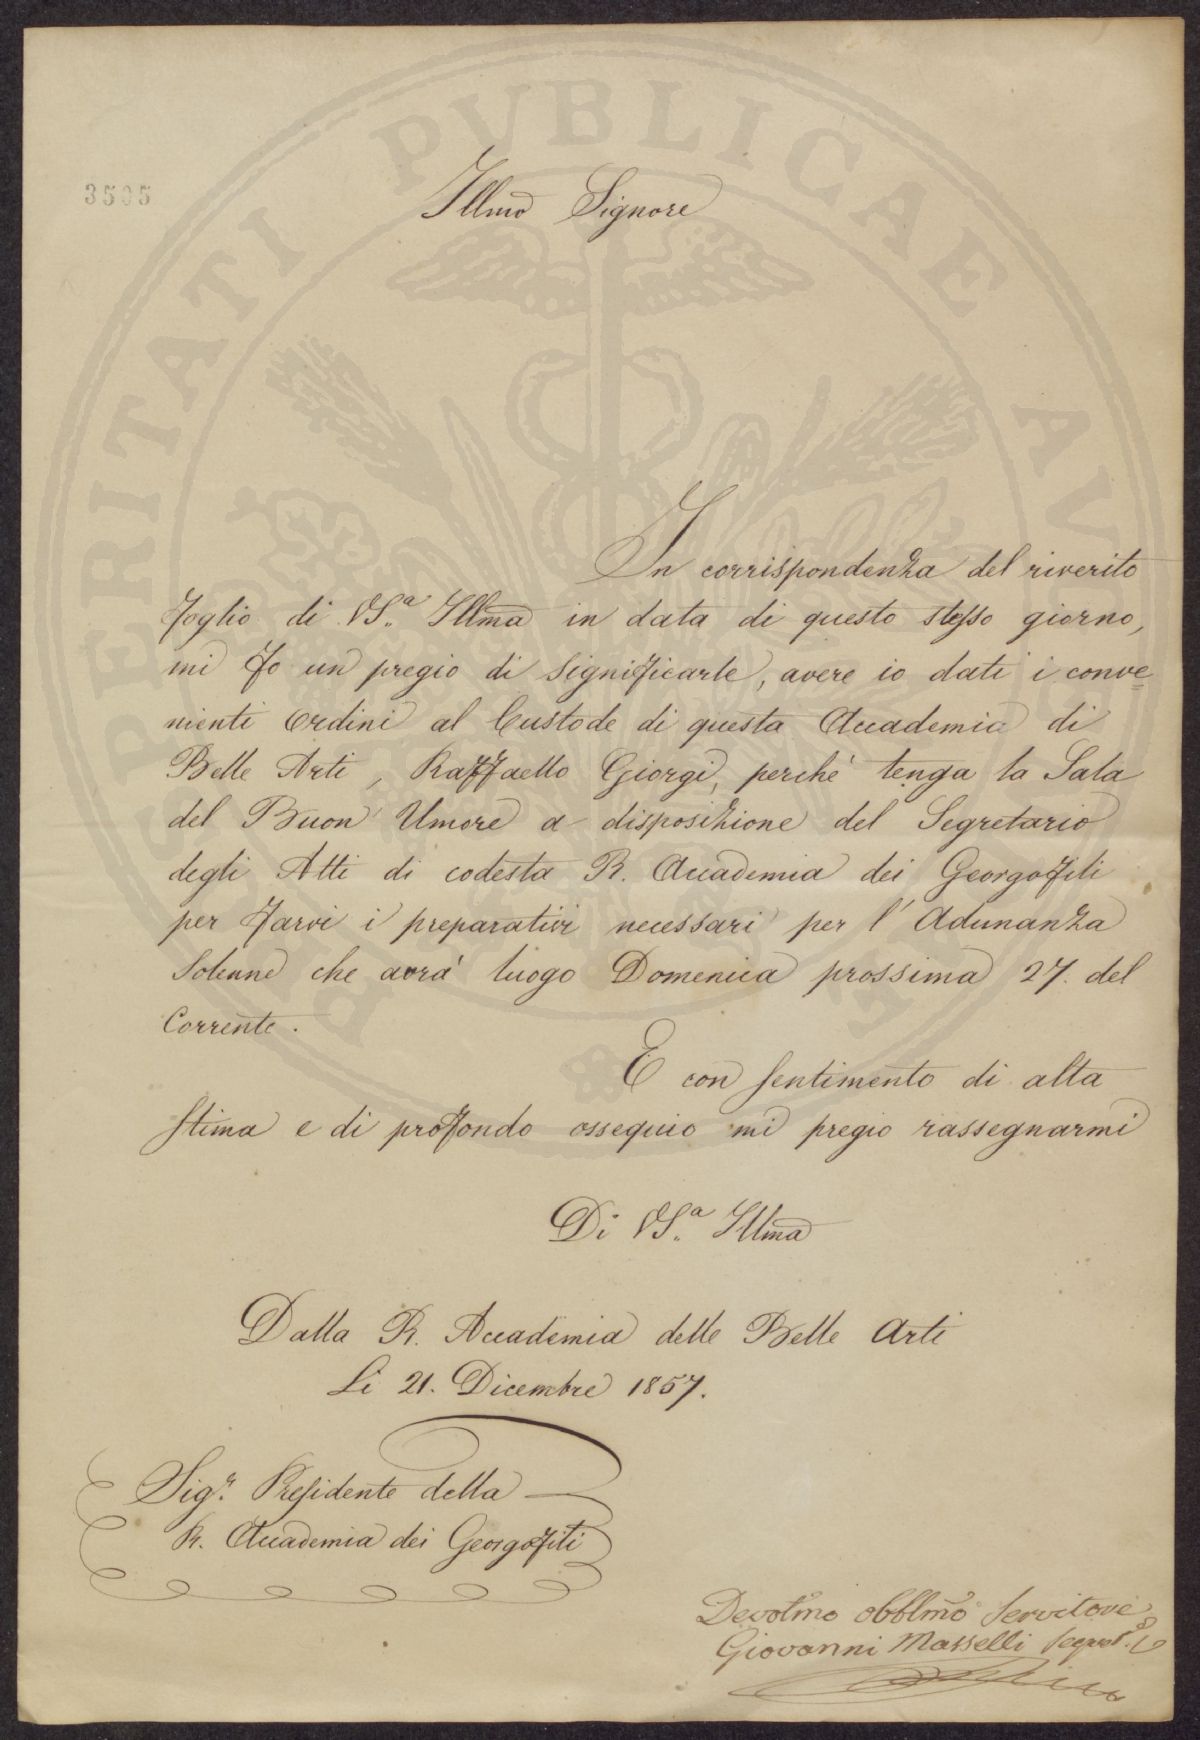 3505
Illmo Signore
In corrispondenza del riverito
foglio di VS.ª Illma in data di questo stesso giorno,
mi fo un pregio di significarle, avere io dati i conve=
nienti Ordini al Custode di questa Accademia di
Belle Arti, Raffaello Giorgi, perchè tenga la Sala
del Buon Umore a disposizione del Segretario
degli Atti di codesta R. Accademia dei Georgofili
per farvi i preparativi necessari per l'Adunanza
Solenne che avrà luogo Domenica prossima 27. del
Corrente.
E con sentimento di alta
stima e di profondo ossequio mi pregio rassegnarmi
Di VS.ª Illma
Dalla R. Accademia delle Belle Arti
Li 21. Dicembre 1857.
Sig.r Presidente della
R. Accademia dei Georgofili
Devotmo obblmo Servitore
Giovanni Masselli
PROSPERITATI PUBLICAE AU